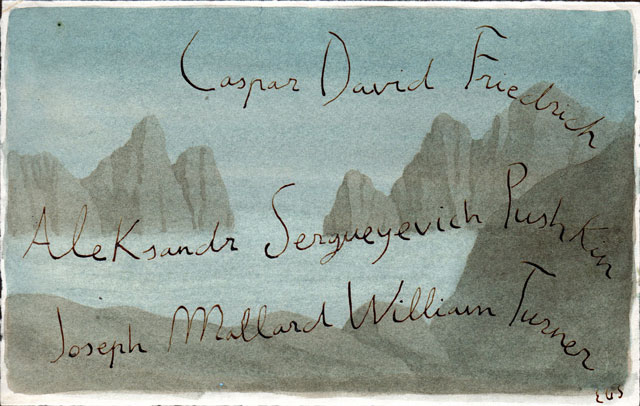 Caspar David Friedrich
Aleksandr Sergueyevich Pushkin
Joseph Mallard William Turner